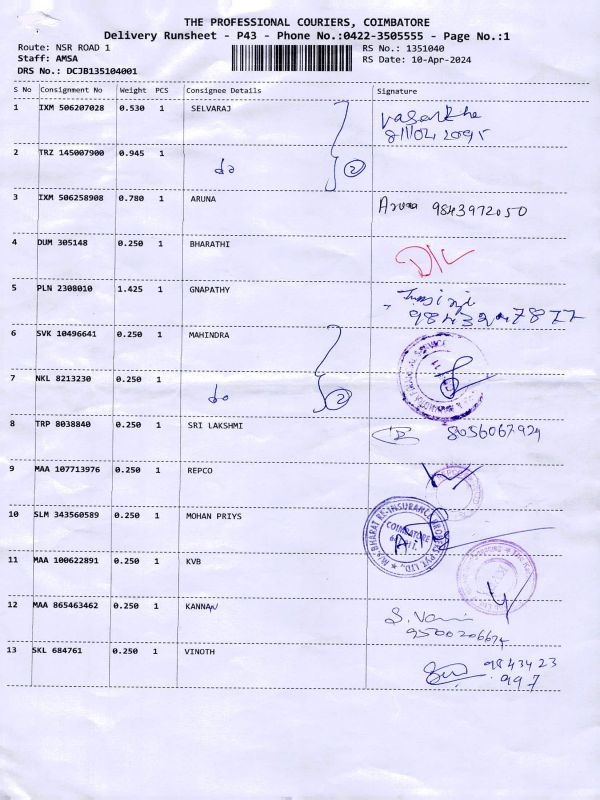 THE PROFESSIONAL COURIERS, COIMBATORE
Delivery Runsheet - P43 - Phone No.:0422-3505555 - Page No.:1
Route: NSR ROAD 1 RS No.: 1351040
Staff: AMSA RS Date: 10-Apr-2024
DRS No.: DCJB135104001
S No Consignment No Weight PCS Consignee Details Signature
1 IXM 506207028 0.530 1 SELVARAJ
2 TRZ 145007900 0.945 1 do 2
3 IXM 506258908 0.780 1 ARUNA Aruna 9843972050
4 DUM 305148 0.250 1 BHARATHI D/L
5 PLN 2308010 1.425 1 GNAPATHY
6 SVK 10496641 0.250 1 MAHINDRA
7 NKL 8213230 0.250 1 do 2
8 TRP 8038840 0.250 1 SRI LAKSHMI 8056067924
9 MAA 107713976 0.250 1 REPCO
10 SLM 343560589 0.250 1 MOHAN PRIYS M/s. BHARAT RE-INSURANCE BROKERS PVT. LTD., COIMBATORE
11 MAA 100622891 0.250 1 KVB
12 MAA 865463462 0.250 1 KANNAN S. Vani
9500206674
13 SKL 684761 0.250 1 VINOTH 9843423
997